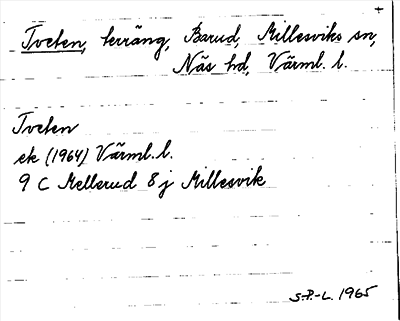 +
Tveten, terräng, Barud, Millesviks sn,
Näs hd, Värml. l.
Tveten
ek (1964) Värml. l.
9 C Mellerud 8 j Millesvik
S.-P.-L. 1965